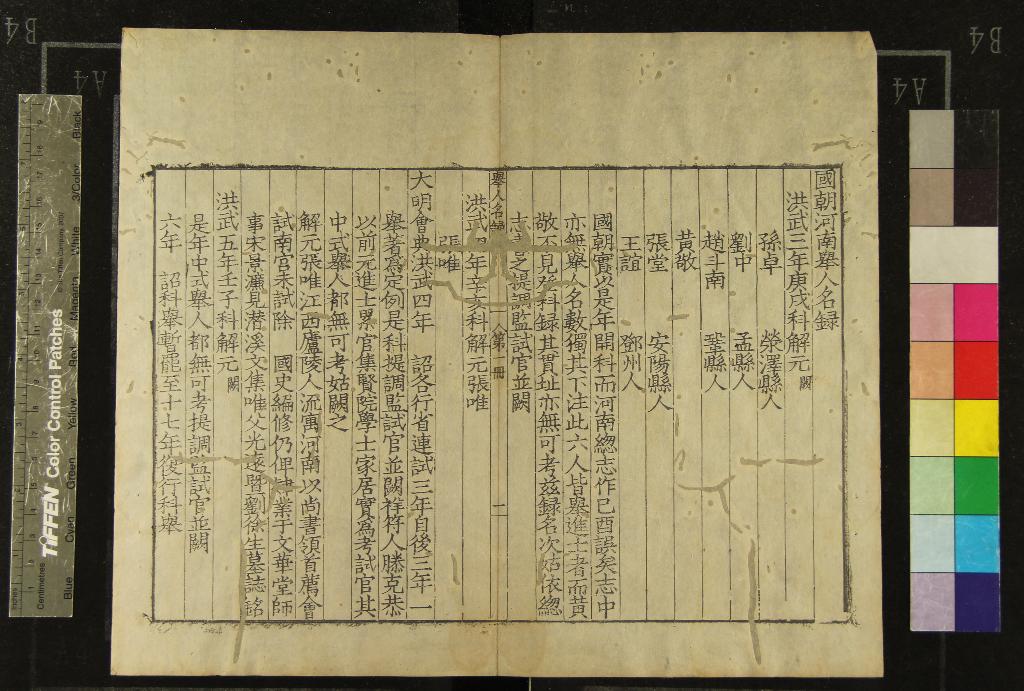 國朝河南舉人名錄
洪武三年庚戌科解元闕
孫卓 滎澤縣人
劉中 孟縣人
趙斗南 鞏縣人
黃敬
張堂 安陽縣人
王誼 鄧州人
國朝實以是年開科而河南總志作己酉誤矣志中
亦無舉人名數獨其下注此六人皆舉進士者而黃
敬不見登科錄其貫址亦無可考兹錄名次姑依總
志 提調監試官並闕
舉人名錄 第一冊 二
洪武四年辛亥科解元張唯
張唯
大明會典洪武四年 詔各行省連試三年自後三年一
舉著為定例是科提調監試官並闕祥符人滕克恭
以前元進士累官集賢院學士家居實為考試官其
中式舉人都無可考姑闕之
解元張唯江西廬陵人流寓河南以尚書領首薦會
試南宮未試除 國史編修仍俾肄業于文華堂師
事宋景濂見潛溪文集唯父光遠暨劉徐生墓誌銘
洪武五年壬子科解元闕
是年中式舉人都無可考提調監試官並闕
六年 詔科舉暫罷至十七年復行科舉
B4
A4
A4
B4
TIFFEN Color Control Patches
Centimetres
Inches
Blue
Cyan
Green
Yellow
Red
Magenta
White
3/Color
Black